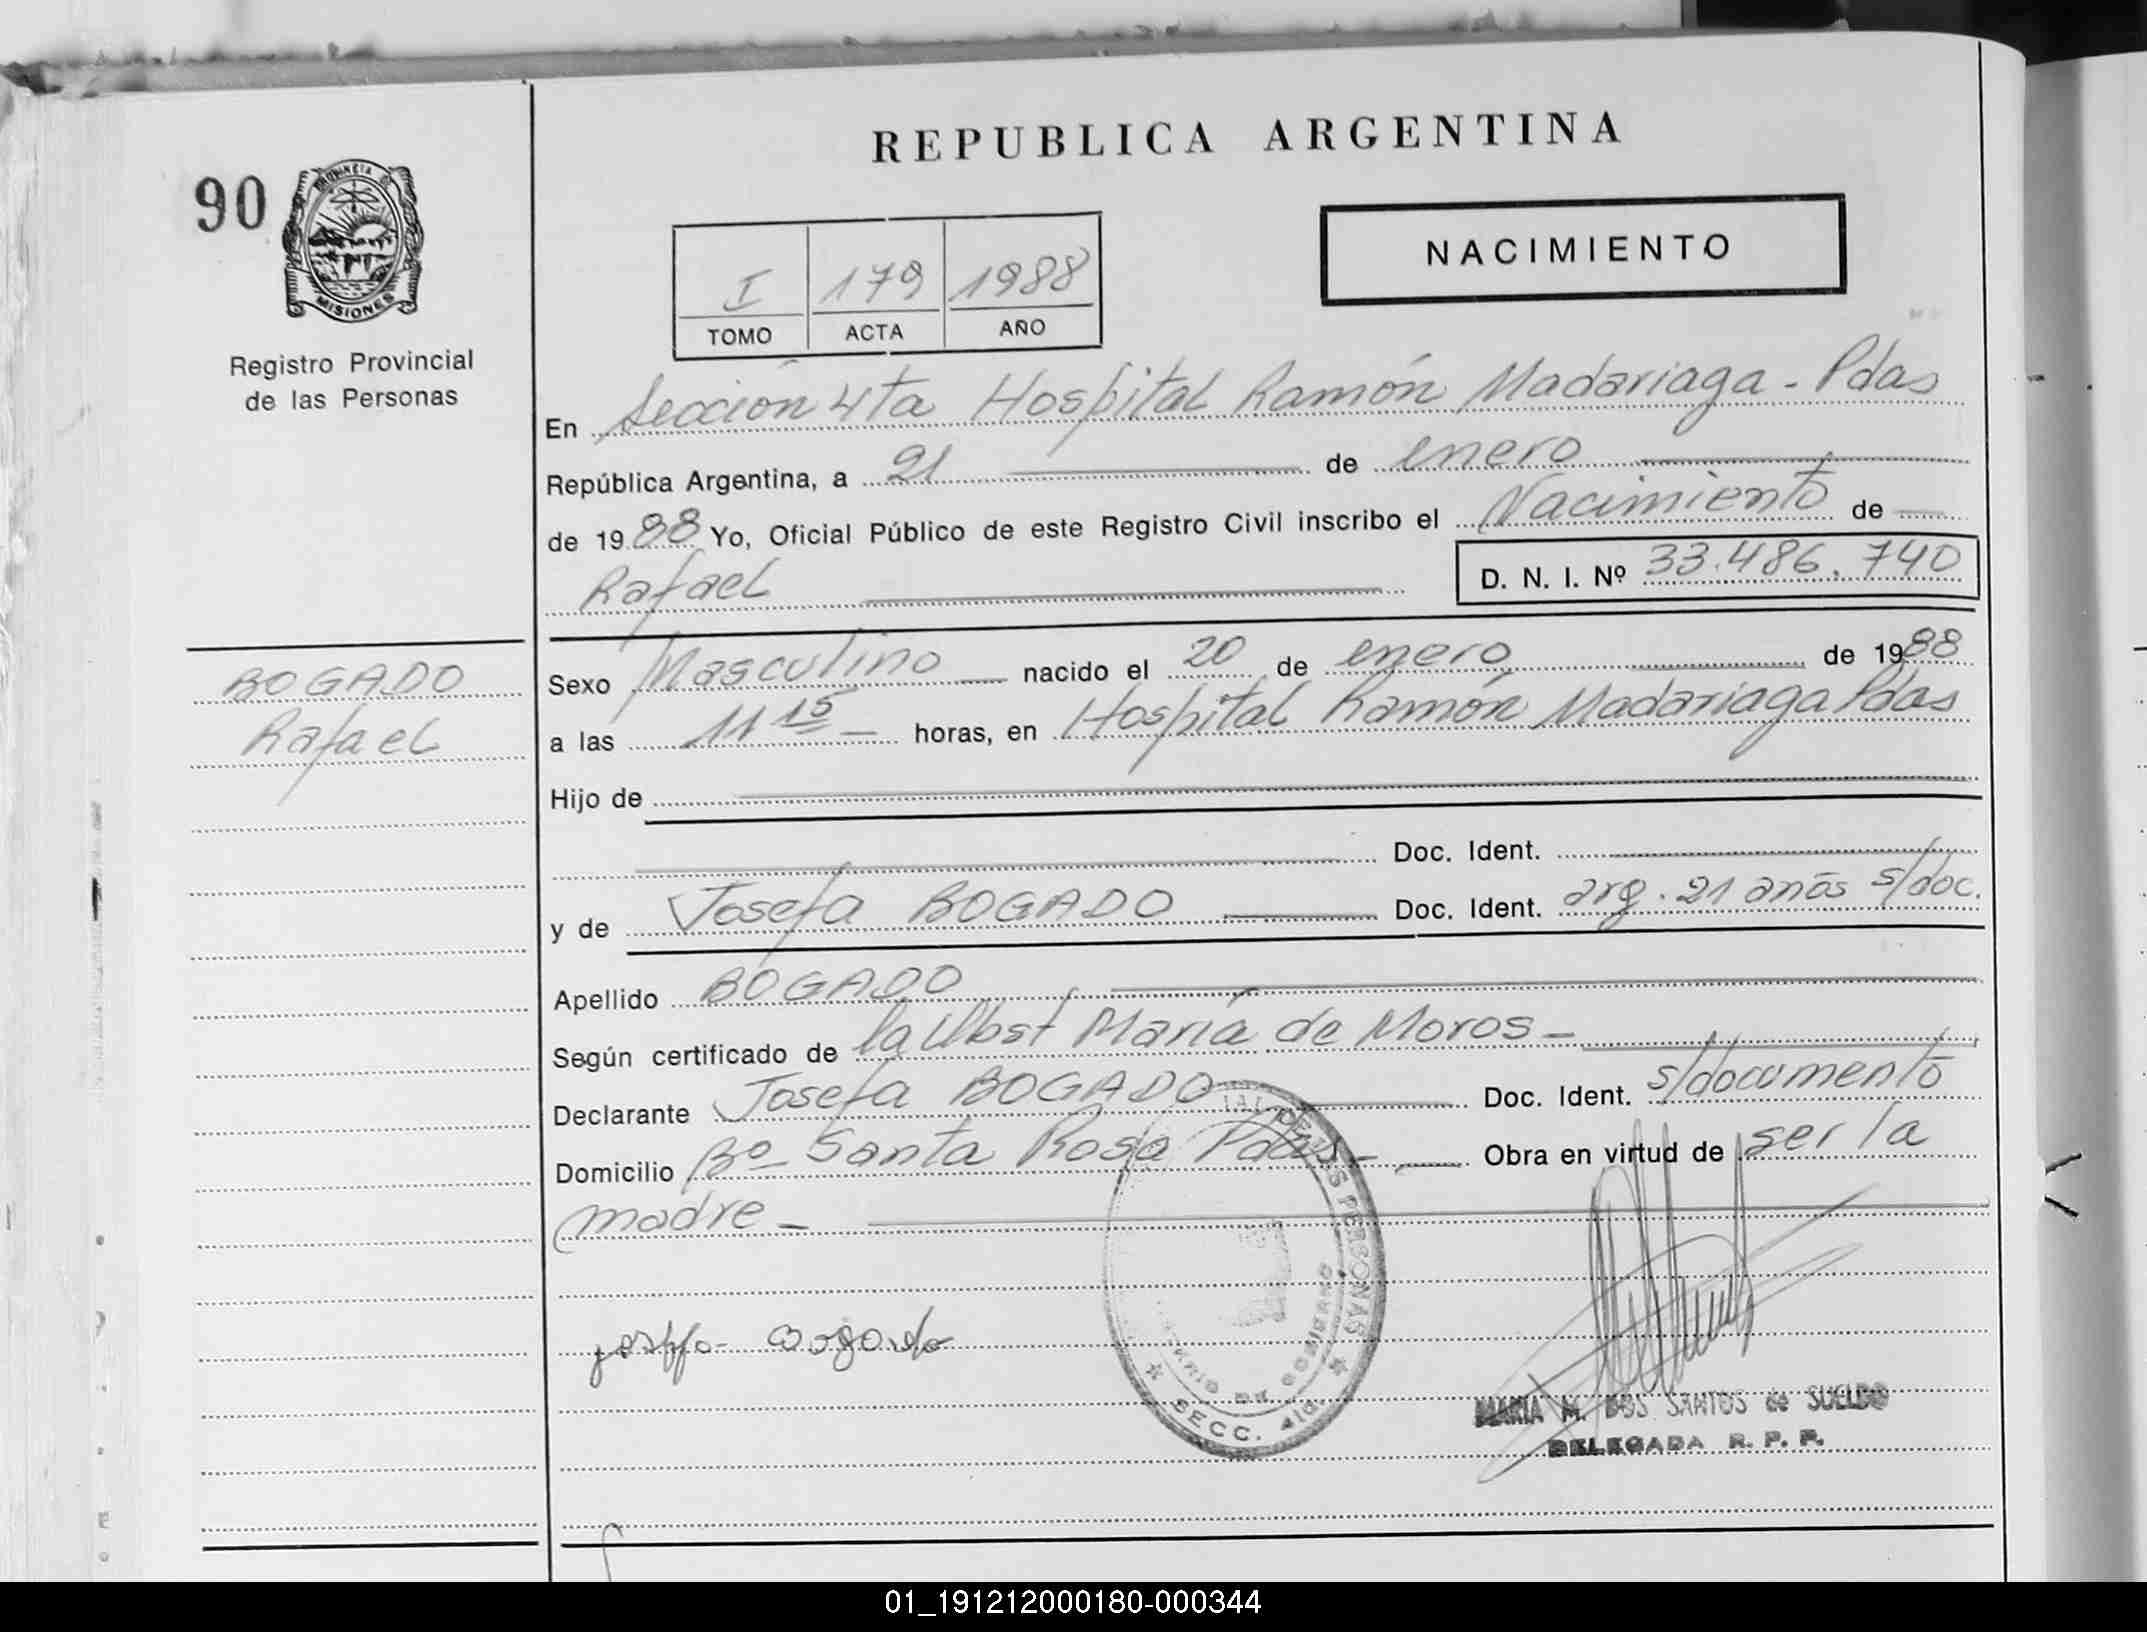 REPUBLICA ARGENTINA
90
PROVINCIA DE
MISIONES
Registro Provincial
de las Personas
NACIMIENTO
I 179 1988
TOMO ACTA AÑO
En Sección 4ta Hospital Ramón Madariaga - Pdas
República Argentina, a 21 de enero
de 1988 Yo, Oficial Público de este Registro Civil inscribo el Nacimiento de
Rafael D. N. I. Nº 33.486.740
BOGADO
Rafael
Sexo Masculino nacido el 20 de enero de 1988
a las 11 15 horas, en Hospital Ramón Madariaga Pdas
Hijo de
Doc. Ident.
y de Josefa BOGADO Doc. Ident. arg. 21 anos s/doc.
Apellido BOGADO
Según certificado de la Obst María de Moros -
Declarante Josefa BOGADO Doc. Ident. s/documento
Domicilio Bº Santa Rosa Pdas - Obra en virtud de ser la
madre -
DE LAS PERSONAS
DE GOBIERNO
SECC. 4ta
MARIA M. DOS SANTOS de SUELDO
DELEGADA R. P. P.
01_191212000180-000344